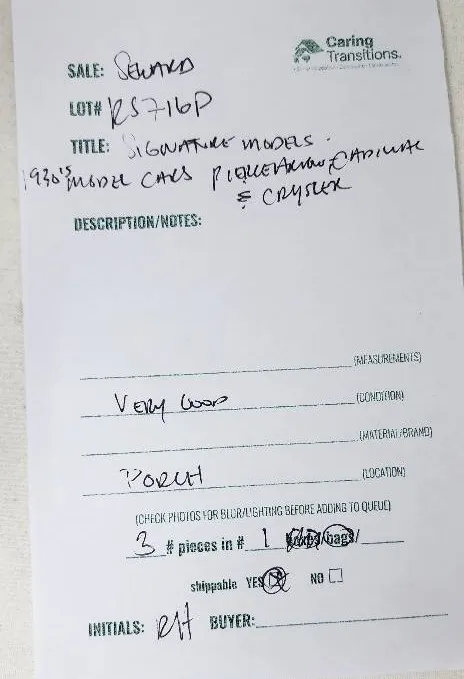 Caring
Transitions.
SALE: SEWARD
LOT# RS716P
TITLE: SIGNATURE MODELS.
1930's MODEL CARS PIERCEARROW, CADILLAC
& CRYSLER
DESCRIPTION/NOTES:
(MEASUREMENTS)
VERY GOOD (CONDITION)
(MATERIAL/BRAND)
PORCH (LOCATION)
(CHECK PHOTOS FOR BLUR/LIGHTING BEFORE ADDING TO QUEUE)
3 # pieces in # 1 /bags/
shippable YES NO
INITIALS: RH BUYER: